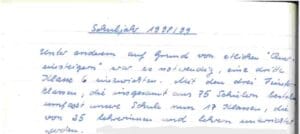 Schuljahr 1998/99
Unter anderem auf Grund von etlichen "Quer-
einsteigern" war es notwendig, eine dritte
Klasse 6 einzurichten. Mit den drei
klassen, die insgesamt aus 75 Schülern
umfasst unsere Schule nun 17 Klassen, die
von 25 Lehrerinnen und Lehrern unterrichtet
werden.